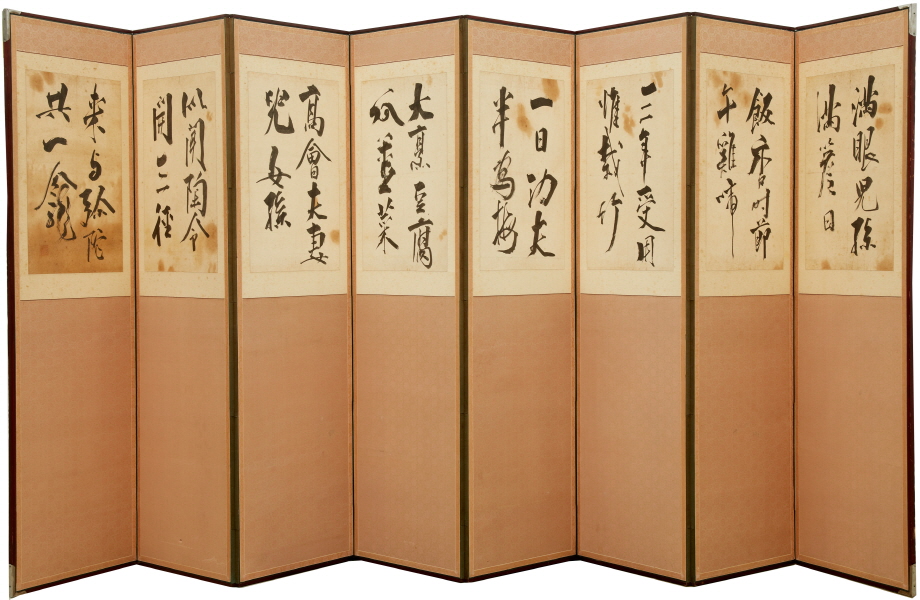 滿眼兒孫
滿簷日
飯香時節
午雞啼
三年受用
惟栽竹
一日功夫
半爲梅
大烹豆腐
瓜薑菜
高會夫妻
兒女孫
似聞陶令
開三徑
來与弥陀
共一龕